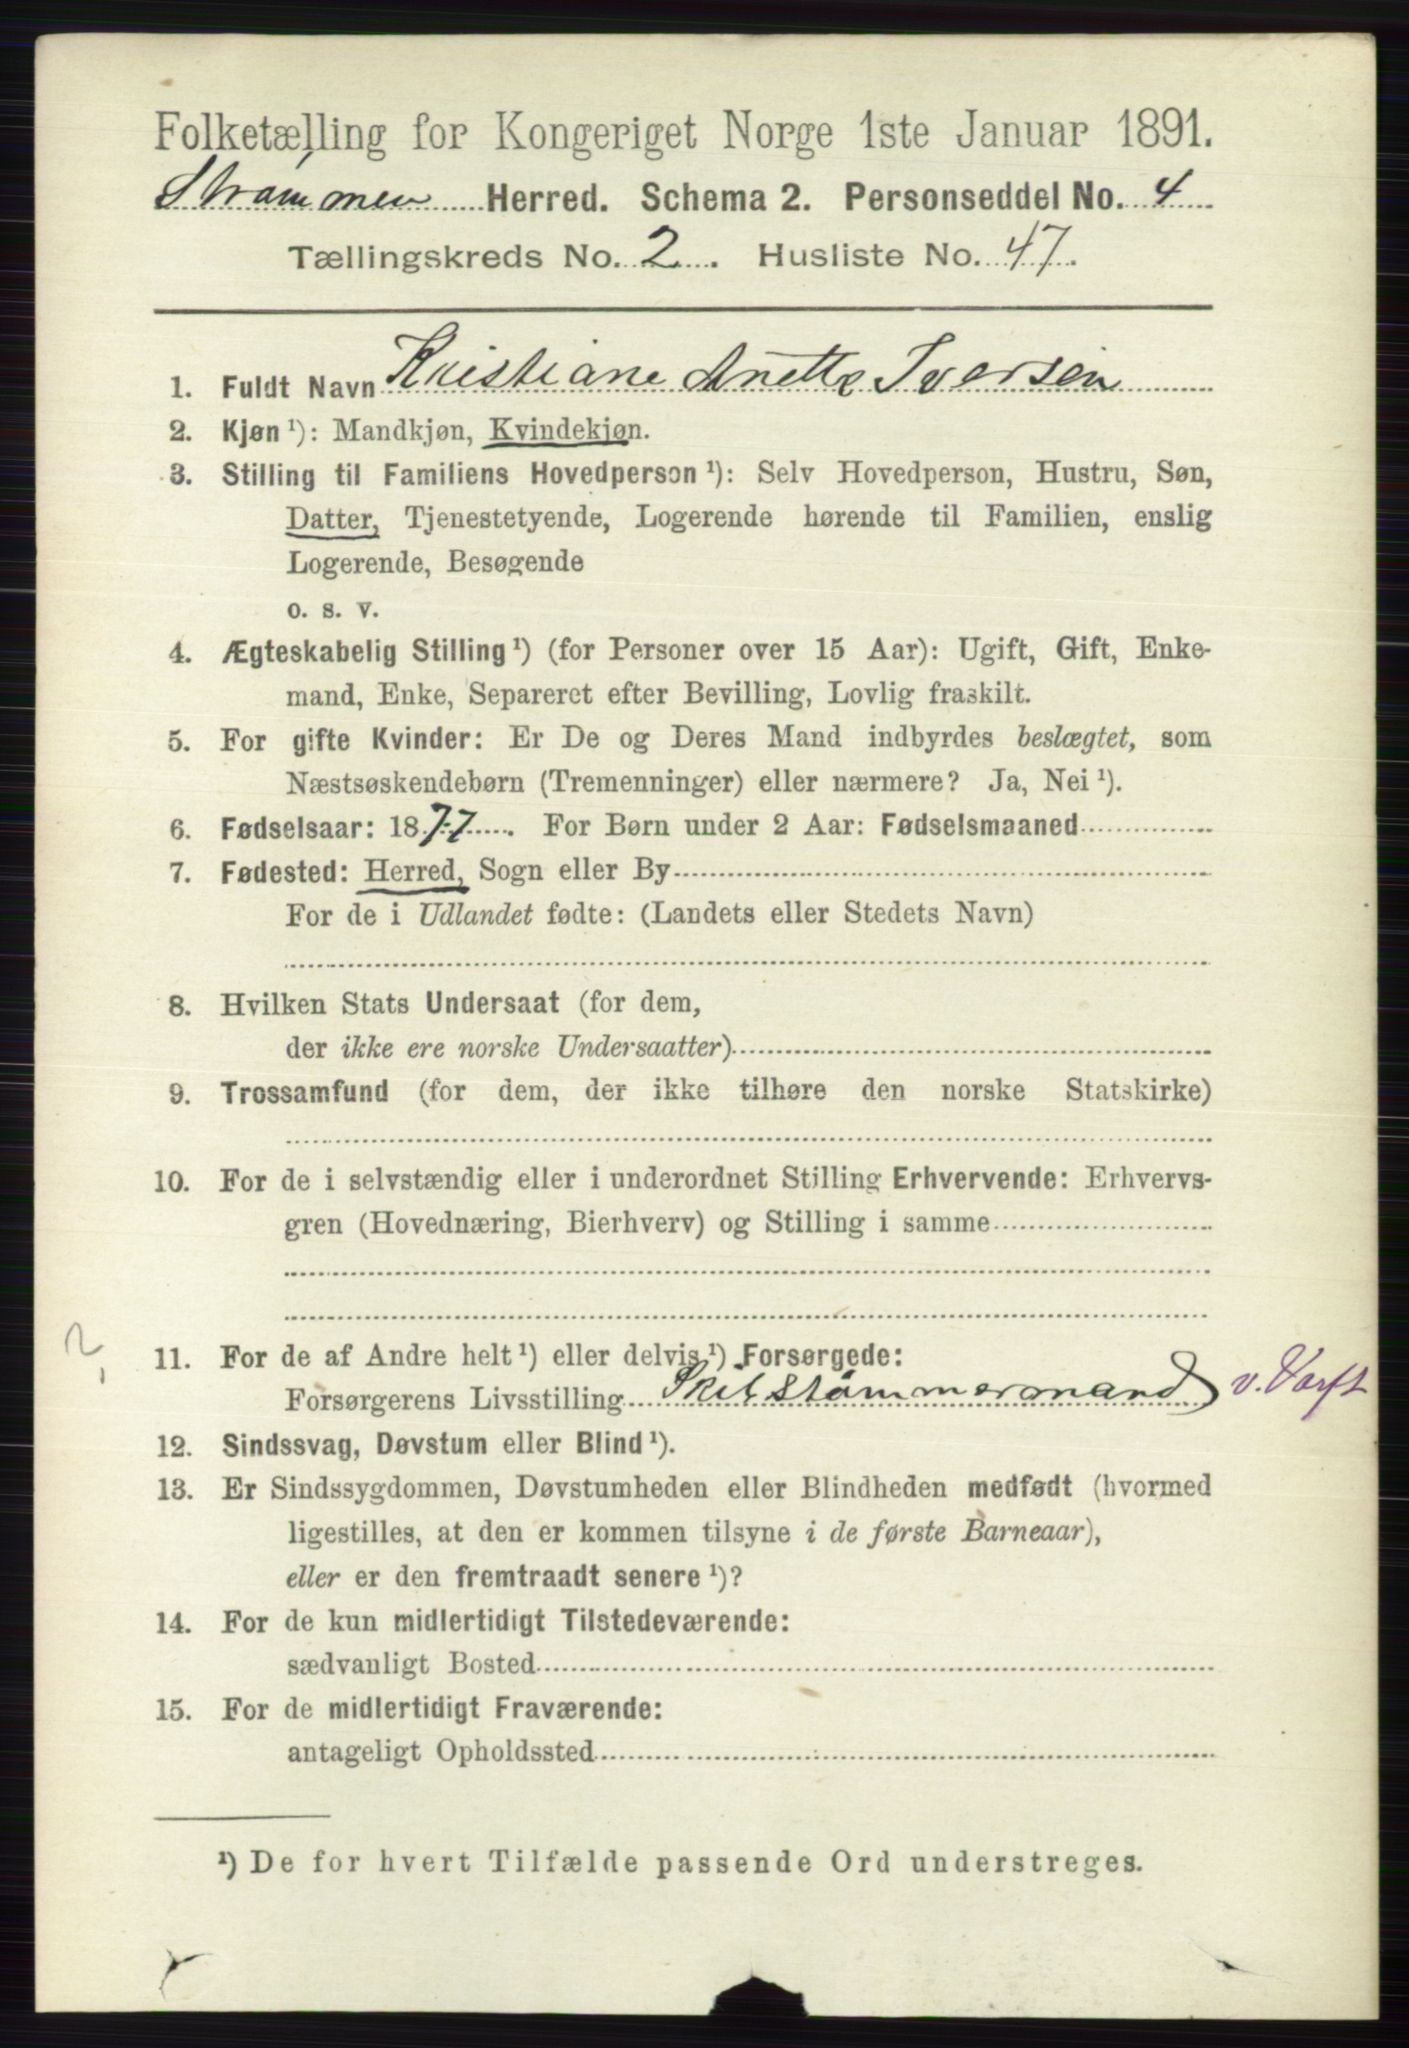 Folketælling for Kongeriget Norge 1ste Januar 1891.
Strømmen Herred. Schema 2. Personseddel No. 4
Tællingskreds No. 2. Husliste No. 47.
1. Fuldt Navn Kristiane Anette Iversen
2. Kjøn ¹): Mandkjøn, Kvindekjøn.
3. Stilling til Familiens Hovedperson ¹): Selv Hovedperson, Hustru, Søn,
Datter, Tjenestetyende, Logerende hørende til Familien, enslig
Logerende, Besøgende
o. s. v.
4. Ægteskabelig Stilling ¹) (for Personer over 15 Aar): Ugift, Gift, Enke-
mand, Enke, Separeret efter Bevilling, Lovlig fraskilt.
5. For gifte Kvinder: Er De og Deres Mand indbyrdes beslægtet, som
Næstsøskendebørn (Tremenninger) eller nærmere? Ja, Nei ¹).
6. Fødselsaar: 1877. For Børn under 2 Aar: Fødselsmaaned
7. Fødested: Herred, Sogn eller By
For de i Udlandet fødte: (Landets eller Stedets Navn)
8. Hvilken Stats Undersaat (for dem,
der ikke ere norske Undersaatter)
9. Trossamfund (for dem, der ikke tilhøre den norske Statskirke)
10. For de i selvstændig eller i underordnet Stilling Erhvervende: Erhvervs-
gren (Hovednæring, Bierhverv) og Stilling i samme
2,
11. For de af Andre helt ¹) eller delvis ¹) Forsørgede:
Forsørgerens Livsstilling Skibstømmermand v. Værft
12. Sindssvag, Døvstum eller Blind ¹).
13. Er Sindssygdommen, Døvstumheden eller Blindheden medfødt (hvormed
ligestilles, at den er kommen tilsyne i de første Barneaar),
eller er den fremtraadt senere ¹)?
14. For de kun midlertidigt Tilstedeværende:
sædvanligt Bosted
15. For de midlertidigt Fraværende:
antageligt Opholdssted
¹) De for hvert Tilfælde passende Ord understreges.